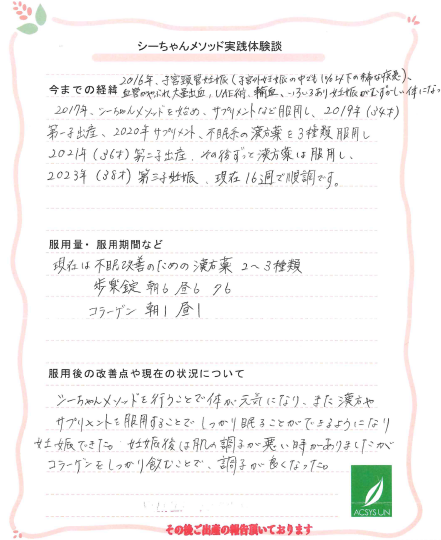 シーちゃんメソッド実践体験談
今までの経緯 2016年、子宮頚管妊娠（子宮外妊娠の中でも1%以下の稀な疾患）、
血管のやぶれ大量出血、UAE術、輸血、いろいろあり妊娠がむずかしい体になっ
2017年、シーちゃんメソッドを始め、サプリメントなど服用し、2019年（34才）
第一子出産、2020年サプリメント、不眠系の漢方薬を3種類服用し
2021年（36才）第二子出産、その後ずっと漢方薬は服用し、
2023年（38才）第三子妊娠、現在16週で順調です。
服用量・服用期間など
現在は不眠改善のための漢方薬 2〜3種類
歩楽錠 朝6 昼6 夕6
コラーゲン 朝1 昼1
服用後の改善点や現在の状況について
シーちゃんメソッドを行うことで体が元気になり、また漢方や
サプリメントを服用することでしっかり眠ることができるようになり
妊娠できた。妊娠後は肌の調子が悪い時がありましたが
コラーゲンをしっかり飲むことで、調子が良くなった。
ACSYS UN
その後ご出産の報告頂いております